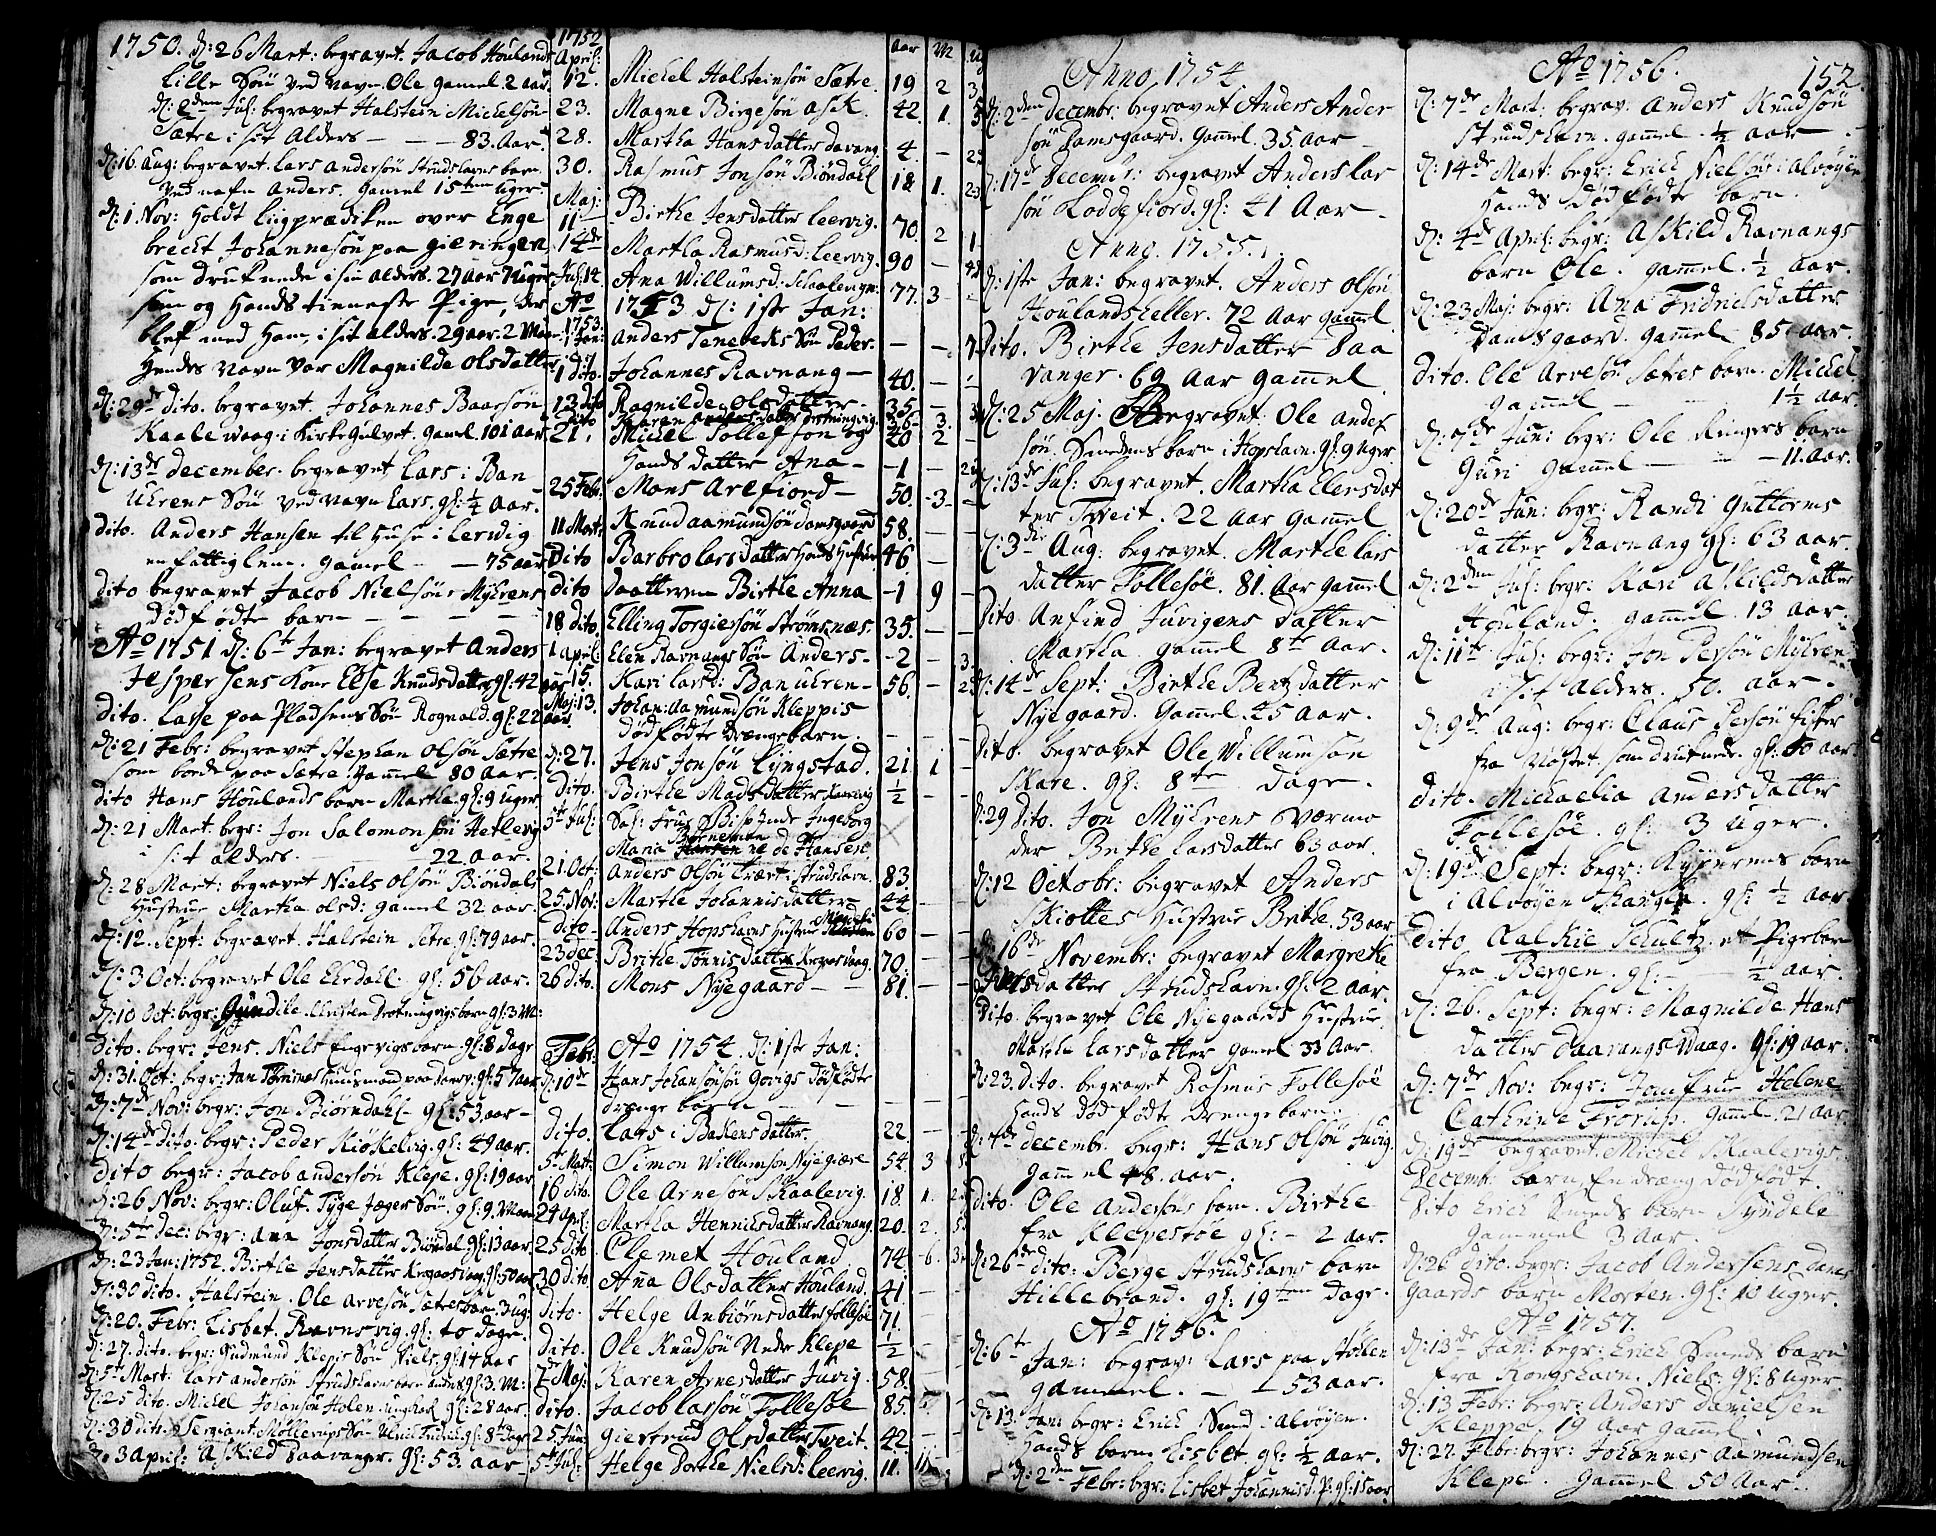 1750. d: 26 Mart: begravet. Jacob Houlands
lille Søn ved navn Ole gamel 2 aar
d: 2den Jul: begravet Halstein Mickelsøn
Sætre i sit Alders — — — 83. Aar.
d: 16. Aug: begravet Lars Andersøn Strudshavns barn
ved nafn Anders. gamel 15ten uger
d: 1. Nov: holdt Liigprædiken over Enge
brecht Johannesøn paa Gieringen
som druknede i sin alders. 27 aar 7 uger
blef med ham, i sit alders. 29 aar. 2 Maa
hendes Navn var Magnilde Olsdatter
d: 29de dito. begravet. Johannes Baarsøn
Kaalewaag i Kirke Gulvet. gamel 101 aar
d: 13de december. begravet Lars i Ban
Uhrens Søn ved navn Lars. gl: ¼ Aar.
dito. Anders Hansen til Huse i Lerwig
en fattiglem. gamel — — 75 aar
dito begravet Jacob Nielsøn Myhrens
dødfødte barn — — — —
Ao 1751 d: 6te Jan: begravet Anders
Jespersens Kone Else Knudsdatter gl: 42 aar
dito. Lasse paa Pladsens Søn Rognald. gl: 22 aar
d: 21 Febr: begravet Stephen Olsøn Sætre
som boede paa Sætre. gamel 80 Aar.
dito Hans Houlands barn Marthe. gl: 9 uger
d: 21 Mart: begr: Jon Salomonsøn Hetlevig
i sit alders. — — 22 aar.
d: 28 Mart: begravet Niels Olsøn Biøndals
Hustrue Martha Olsd: gamel 32 aar.
d: 12. Sept: begravet. Halstein Sætre gl: 79 aar.
d: 3 Oct: begravet Ole Ekrdahl. gl: 56 aar.
d: 10 Oct: begr: Gundile. Christen Drotningvigs barn gl: 3 M:
dito. begr: Jens. Niels Engevigs barn. gl: 8 dage
d: 31. Oct: begr: Jan Tørnimes huusmand paa gl: 57 aar
d: 7de Nov: begr: Jon Biørndahl — gl: 53. aar —
d: 14de dito. begr: Peder Kiøkelvig. gl: 49 aar.
dito begr: Jacob Andersøn Klepe. gl: 19 aar
d: 26 Nov: begr: Oluf. Tyge Jæger Søn. gl: 9. Maan
d: 5te Dec: begr: Ana Jonsdatter Biøndal. gl: 13 aar
d: 23 Jan: 1752. Birthe Jensdatter gl: 50 aar
d: 30 dito. Halstein. Ole Arvesøn Sætres barn. 3 ug:
d: 20. Febr: Lisbet. Ravnsvig. gl: 10 dage.
d: 27. dito. begr: Gudmund Klepis Søn Niels. gl: 14 aar
d: 5te Mart: Lars Andersøn Strudshavns barn gl: 3. M:
d: 25 dito. Mickel Johansøn Holen gl: 28 aar.
d: 30 dito. Sergiant Møllerups Søn gl: 8te dage
d: 3 April: Askild Daavanger. gl: 53. aar
1752 aar M ug
April:
12. Mickel Halsteinsøn Sætre. 19 2 3
23. Magne Birgesøn Ask. 42. 1. 3
28. Martha Hansdatter Davang. 4. —
30. Rasmus Jonsøn Biøndahl 18 1.
Maj:
11 Birthe Jensdatter Leervig. 70. 2
14de Martha Rasmusd: Leervig. 90 —
Jul: 14 Ana Willumsd: Skaalevigen. 77. 3 —
Ao 1753 d: 1ste Jan:
1753. 1 Jan: Anders Tenebeks Søn Peder. — —
1 dito. Johannes Ravnang — 40. —
13 dito Ragnilde Olsdatter — 35. —
dito Karen Andersdatter Drotningvig. 36 — 3.
21. Mickel Tollefson og 40 2 —
hands datter Ana — — 1 —
25 Febr: Mons Arefiord — 50. — 3 —
11 Mart: Knud Aamundsøn Damsgaard 58. — —
Dito Barbro Larsdatter hans Hustrue 46 —
dito Daatteren Birthe Anna — 1 9 —
18 dito. Elling Torgiersøn Strømsnæs. 35. — —
1 April: Elen Ravnangs Søn Anders — — 2 — 3.
15. Kari Larsd: Ban Uhren — 56. —
Maj: 13. Johan: Aamundsøn Kleppis
dødfødte Drængebarn. — — —
d: 27. Jens Jonsøn Lyngstad. 21. 1 —
dito. Birthe Madsdatter ½ — —
5te Jul: Sal: Frue Bispinde Ingeborg
Maria Børneman de Hansen.
21. Oct: Anders Olsøn i Strudshavn. 83. —
25. Nov: Marthe Johannisdatter 44 —
dito — Anders Hopshavns Hustrue 60 —
23 dec: Brithe Tønnisdatter 70. —
26 dito. Mons Nyegaard — — 81. — —
Febr: Ao 1754. d: 1ste Jan:
d: 10de Hans Johansøn Govigs dødfødte
drænge barn — — —
dito. Lars i Bakens datter. 22 —
5te Mart: Simon Willumson Nyegiære 54 3
16 dito. Ole Arnesøn Skaalevig. 18 1.
24 April: Martha Henrichsdatter Ravnang. 20. 2. 5.
25 dito. Clemet Houland 74 — 6. 3.
30 dito Ana Olsdatter Houland. 41 — —
dito. Helge Anbiørnsdatter Follesøe 71. —
dito. Ole Knudsøn Under Klepe ½ —
7de Maj: Karen Arnesdatter Juvig. 58. —
dito. Jacob Larsøn Follesøe 85. —
25 Jun: Giertrud Olsdatter Tveit. 42 — —
5te Jul: Helge Dorthe Nielsd: Leervig. 11.
Anno. 1754.
d: 2den decembr: begravet Anders Ander
søn Damsgaard. Gamel. 35. Aar —
d: 17de Decembr: begravet Anders Lar
søn Loddefiord. gl: 41 Aar —
Anno. 1755.
d: 1ste Jan: begravet. Anders Olsøn
Houlandsheller. 72 Aar gamel
Dito. Birthe Jensdatter Daa
vanger. 69 Aar gamel
d: 25 Maj. Begravet. Ole Ander
søn Smedens barn i Hopshavn. gl. 9 uger.
d: 13de Jul: begravet. Martha Elersdat
ter Tweit. 22 Aar gamel
d: 3die Aug: begravet. Marthe Lars
datter Follesøe. 81. Aar gamel
Dito. Anfind Juvigens Datter
Martha. gamel 8te Aar.
d: 14de Sept: Birthe Bentzdatter
Nyegaard. gamel. 45 Aar.
dito. begravet Ole Willumsøn
Skare. gl: 8te Dage.
d: 29 Dito. Jon Myhrens Værmo
der Berthe Larsdatter 63 aar.
d: 12 Octobr: begravet Anders
Skiottes Hustrue Brithe. 53 aar
d: 16de Novembr: begravet Margrethe
datter Strudshavn. gl: 2 aar.
Dito. begravet Ole Nyegaards Hustrue
Marthe Larsdatter gamel 33 Aar.
d: 23. dito. begravet Rasmus Follesøe
hands dødfødte Drengebarn
d: 7de decembr: begr: Hans Olsøn Juvig
gamel 48. aar.
dito. Ole Andersøns barn. Birthe
fra Klepestøe gl: — 2 aar.
d: 26de dito: Berge Strudshavns barn
Hillebrand. gl: 19ten dage.
No 1756.
d: 6te Jan: begrav: Lars paa Støllen
gammel. — — 53 aar.
d: 13. Jan: begr: Erich Smed i Alvøyen.
hands barn Lisbet gl: ½ aar.
d: 2den Febr: begr: Lisbet Johannisd. gl: 15 aar
Ao 1756. 152.
d: 7de Mart: begrav: Anders Knudsøn
Strudshavn. gamel. ½ aar —
d: 14de Mart: begr: Erich Nielsøns i Alvøyen
hands Dødfødte barn.
d: 4de April: begr: Askild Ravnangs
barn Ole. gamel. ½ aar.
d: 23 Maj: begr: Ana Fridrichsdatter
Damsgaard. gamel 85 aar.
dito. Ole Arvesøn Sætres barn. Mickel
gamel — — — 1½ aar
d: 7de Jun: begr: Ole Ringers barn
Guri gamel — — 11. aar.
d: 20de Jun: begr: Randi Guttorms
datter Ravnang gl: 63 aar.
d: 2den Jul: begr: Kari Askildsdatter
Houland. gamel. 13 aar.
d: 11te Jul: begr: Jon Persøn Myhren
i sit alders. 50. aar.
d: 9de Aug: begr: Claus Persøn fisker
fra Nøstet som druknede. gl: 50 aar
dito. Michaelia Andersdatter
Follesøe. gl: 3 uger.
d: 19de Sept: begr: barn
i Alvøyen gl: ½ aar.
dito Schultz. et Pigebarn
fra Bergen. gl: — ½ aar.
d: 26. Sept: begr: Magnilde Hans
datter Daavangs-Waag. gl: 19 aar.
d: 7de Nov: begr: Jomfrue Helene
Cathrine Frorup. gamel. 21 aar
d: 19de begravet Mickel Kaalevigs
Decembr: barn, En dræng Dødfødt.
Dito Erich Smeds barn Syndele
gammel 3 Aar.
d: 26 dito. begr: Jacob Andersens Dams
gaards barn Morten. gl: 10 uger.
Ao 1757.
d: 13de Jan: begr: Erich Smeds barn
fra Kongshavn. Niels. gl: 8 uger
d: 13 Febr: begr: Anders Danielsen
Kleppe. 19 Aar gamel.
d: 27. Febr: begr: Johannes Aamundsen
Klepe. gammel 50 Aar.